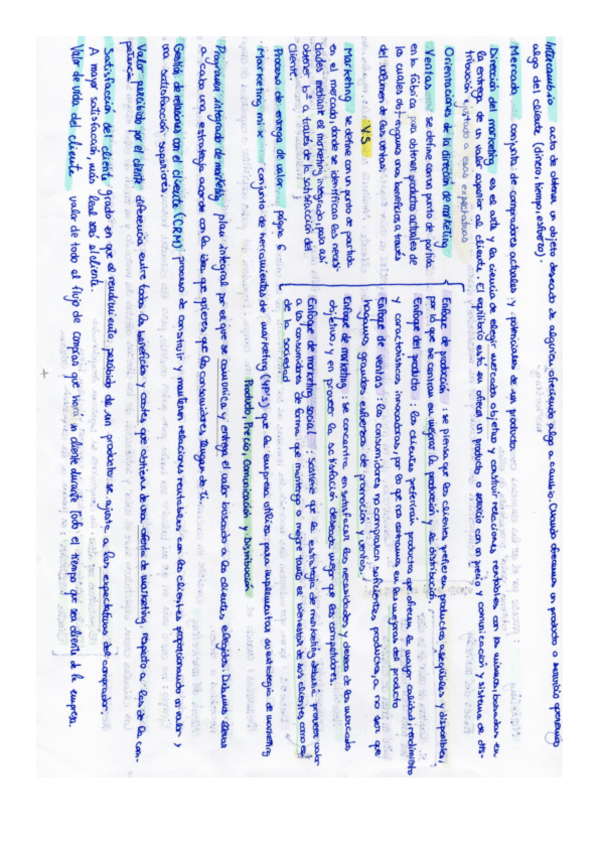 Intercambio acto de obtener un objeto deseado de alguien, ofreciendo algo a cambio. Cuando ofrecemos un producto o servicio queremos
algo del cliente (dinero, tiempo, esfuerzo).
Mercado conjunto de compradores actuales y potenciales de un producto.
Dirección del marketing es el arte y la ciencia de elegir mercados objetivo y construir relaciones rentables con los mismos, basadas en
la entrega de un valor superior al cliente. El equilibrio está en ofrecer un producto o servicio con un precio y comunicación y sistema de dis-
tribución ajustado a esas expectativas
Orientaciones de la dirección de marketing
Ventas se define con un punto de partida
en la fábrica para obtener productos actuales de
los cuales obtengamos unos beneficios a través
del volumen de las ventas.
VS
Marketing se define con un punto de partida
en el mercado, donde se identifican las necesi-
dades mediante el marketing integrado, para así
obtener bº a través de la satisfacción del
cliente.
Enfoque de producción : se piensa que los clientes prefieren productos asequibles y disponibles,
por lo que se centran en mejorar la producción y la distribución.
Enfoque del producto : los clientes preferirán productos que ofrecen la mayor calidad, rendimiento
y características innovadoras, por lo que nos centramos en las mejoras del producto
Enfoque de ventas : los consumidores no compran suficientes productos, a no ser que
hagamos grandes esfuerzos de promoción y ventas.
Enfoque de marketing : se concentra en satisfacer las necesidades y deseos de los mercados
objetivo, y en proveer la satisfacción deseada mejor que los competidores.
Enfoque de marketing social : sostiene que la estrategia de marketing debería proveer valor
a los consumidores de forma que mantenga o mejore tanto el bienestar de los clientes, como el
de la sociedad
Proceso de entrega de valor página 6
Producto, Precio, Comunicación y Distribución
· Marketing mix conjunto de herramientas de marketing (4P's) que la empresa utiliza para implementar su estrategia de marketing
Programa integrado de marketing plan integral por el que se comunica y entrega el valor buscado a los clientes elegidos. Debemos llevar
a cabo una estrategia acorde con la idea que quieres que los consumidores tengan de ti
Gestión de relaciones con el cliente (CRM) proceso de construir y mantener relaciones rentables con los clientes proporcionando un valor y
una satisfacción superiores.
Valor percibido por el cliente diferencia entre todos los beneficios y costes que obtiene de una oferta de marketing respecto a los de la com-
petencia
Satisfacción del cliente grado en que el rendimiento percibido de un producto se ajusta a las expectativas del comprador.
A mayor satisfacción, más leal será el cliente.
Valor de vida del cliente valor de todo el flujo de compras que hará un cliente durante todo el tiempo que sea cliente de la empresa.